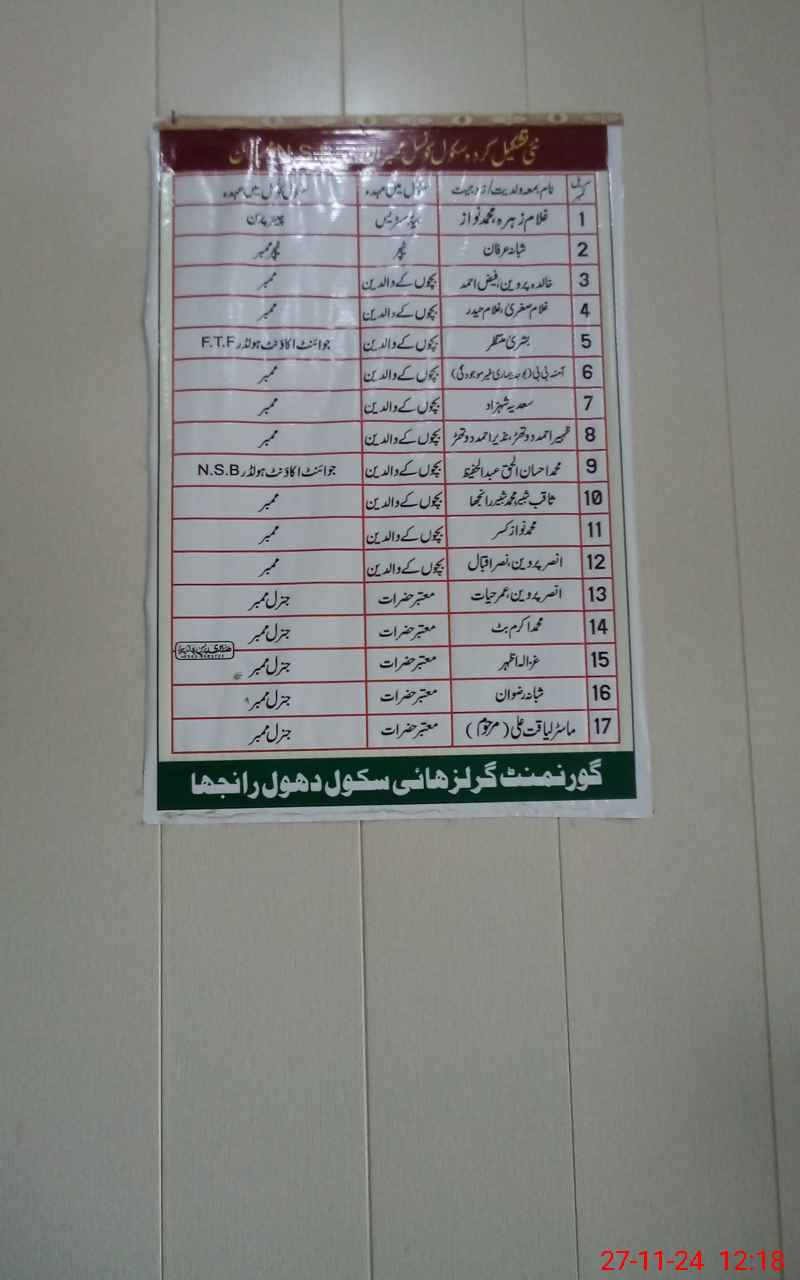 نئی تشکیل کردہ سکول کونسل ممبران N.S.B
نام بمعہ ولدیت/زوجیت سکول میں عہدہ سکول کونسل میں عہدہ
1 غلام زہرہ، محمد نواز ہیڈ مسٹریس چیئر پرسن
2 شبانہ عرفان ٹیچر ٹیچر ممبر
3 خالدہ پروین، فیض احمد بچوں کے والدین ممبر
4 غلام صغریٰ، غلام حیدر بچوں کے والدین ممبر
5 بشریٰ منتظر بچوں کے والدین جوائنٹ اکاؤنٹ ہولڈر F.T.F
6 آمنہ بی بی (بوجہ بیماری غیر موجودگی) بچوں کے والدین ممبر
7 سعدیہ شہزاد بچوں کے والدین ممبر
8 ظہیر احمد دوتھڑ، نذیر احمد دوتھڑ بچوں کے والدین ممبر
9 محمد احسان الحق عبدالحفیظ بچوں کے والدین جوائنٹ اکاؤنٹ ہولڈر N.S.B
10 ثاقب شبیر، محمد شبیر رانجھا بچوں کے والدین ممبر
11 محمد نواز کسر بچوں کے والدین ممبر
12 انصر پروین، نصر اقبال بچوں کے والدین ممبر
13 انصر پروین، عمر حیات معتبر حضرات جنرل ممبر
14 محمد اکرم بٹ معتبر حضرات جنرل ممبر
15 غزالہ اظہر معتبر حضرات جنرل ممبر
16 شبانہ رضوان معتبر حضرات جنرل ممبر
17 ماسٹر لیاقت علی (مرحوم) معتبر حضرات جنرل ممبر
گورنمنٹ گرلز ھائی سکول دھول رانجھا
27-11-24 12:18